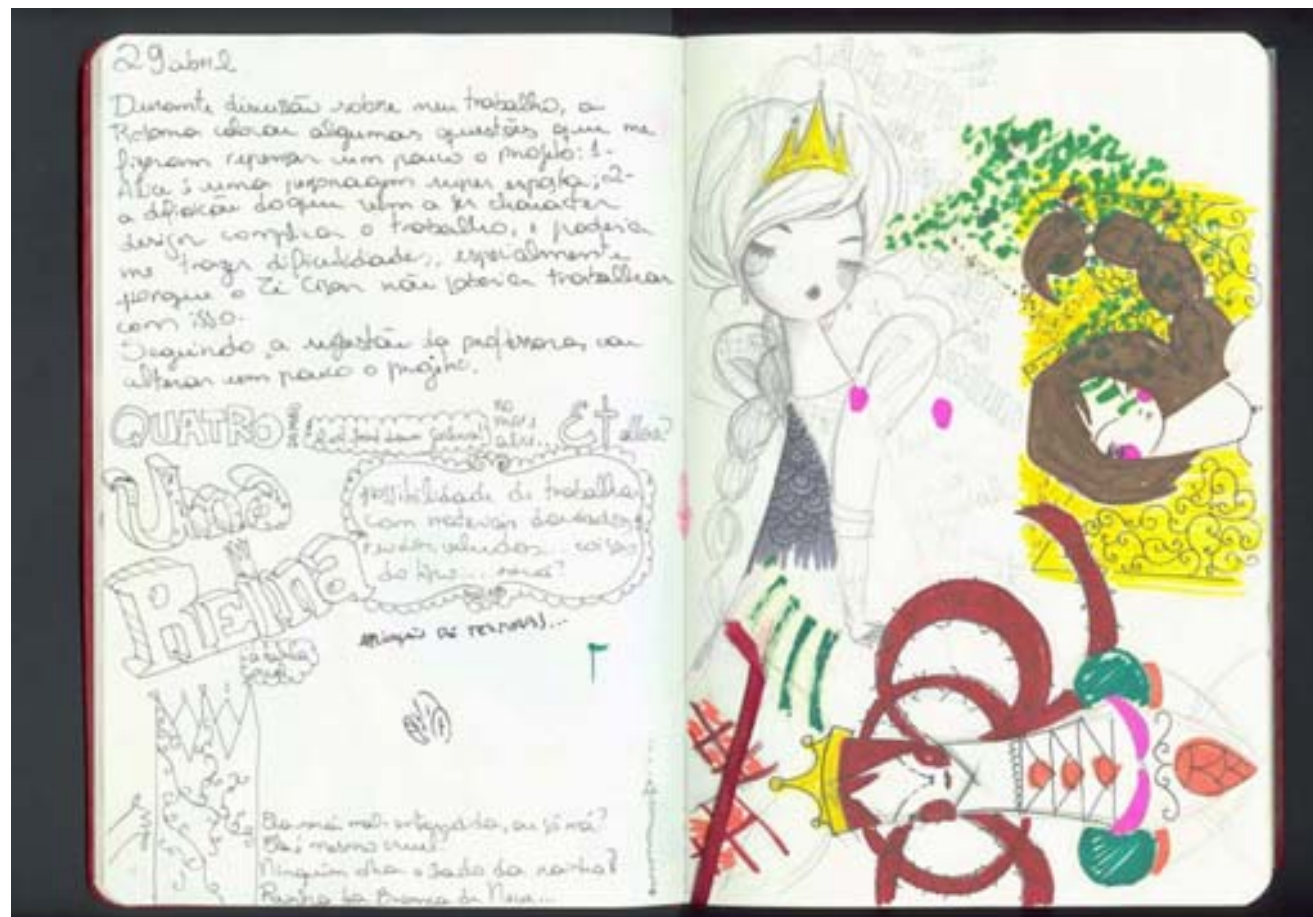 29 abril
Durante discussão sobre meu trabalho, a
colocou algumas questões que me
fizeram repensar um pouco o projeto: 1-
Alice é uma personagem super exposta; 2-
a definição do que vem a ser character
design complica o trabalho, e poderia
me trazer dificuldades, especialmente
porque o Zé Cesar não poderia trabalhar
com isso.
Seguindo a sugestão da professora, vou
alterar um pouco o projeto.
QUATRO
no mais
Et
Uma
REINA
possibilidade de trabalhar
com materiais dourados,
veludos... coisas
do tipo...
Ela será mal-interpretada, ou só má?
Ela é mesmo cruel?
Ninguém olha o lado da rainha?
Rainha da Branca de Neve...